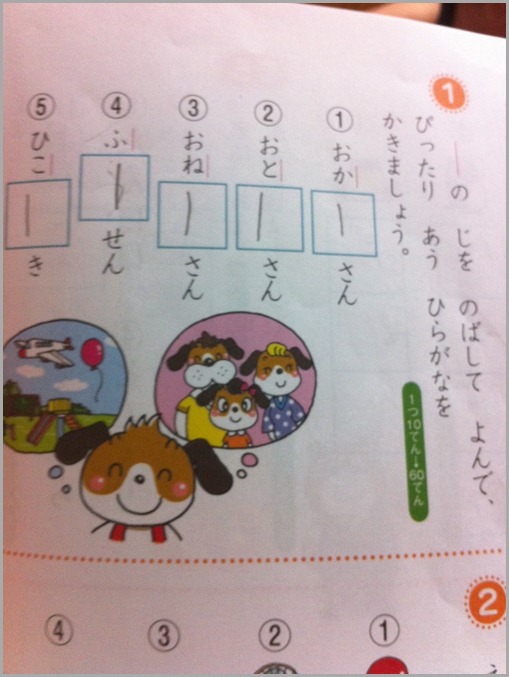 1
｜の じを のばして よんで、
ぴったり あう ひらがなを
かきましょう。
1つ10てん→60てん
① おか｜さん
② おと｜さん
③ おね｜さん
④ ふ｜せん
⑤ ひこ｜き
2
①
②
③
④